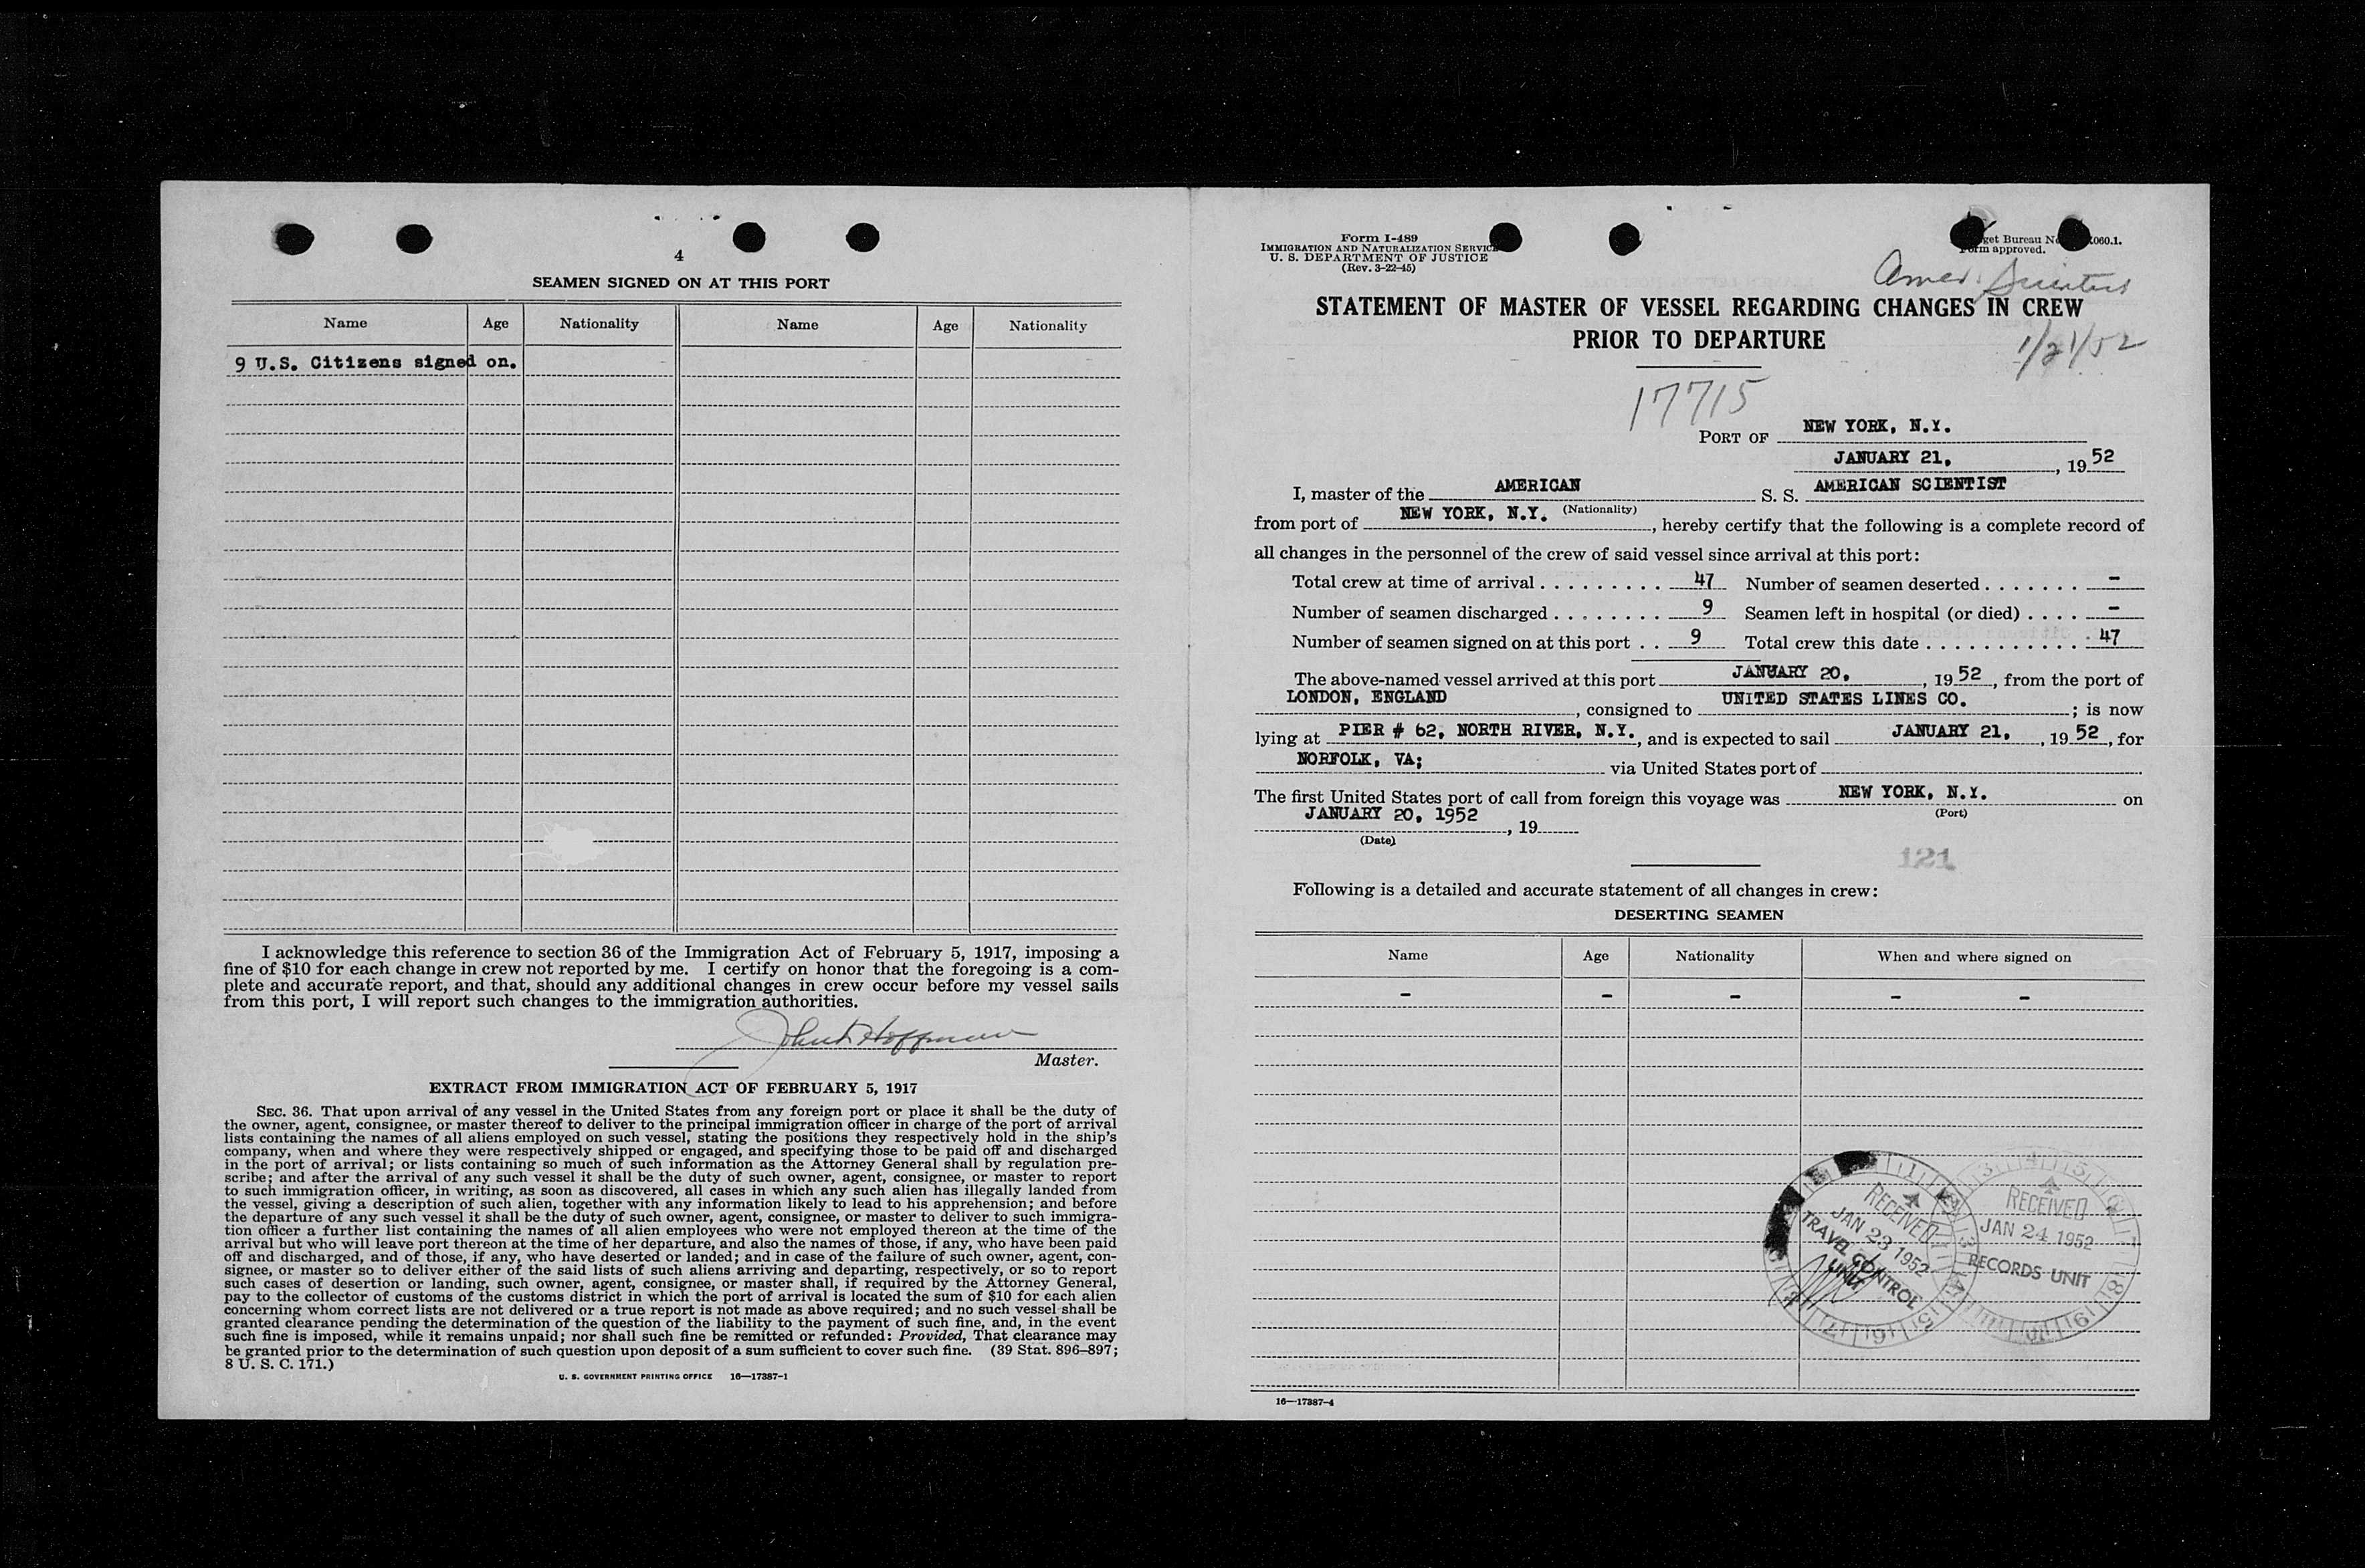 4
SEAMEN SIGNED ON AT THIS PORT
Name Age Nationality Name Age Nationality
9 U.S. Citizens signed on.
I acknowledge this reference to section 36 of the Immigration Act of February 5, 1917, imposing a
fine of $10 for each change in crew not reported by me. I certify on honor that the foregoing is a com-
plete and accurate report, and that, should any additional changes in crew occur before my vessel sails
from this port, I will report such changes to the immigration authorities.
Hoffman
Master.
EXTRACT FROM IMMIGRATION ACT OF FEBRUARY 5, 1917
SEC. 36. That upon arrival of any vessel in the United States from any foreign port or place it shall be the duty of
the owner, agent, consignee, or master thereof to deliver to the principal immigration officer in charge of the port of arrival
lists containing the names of all aliens employed on such vessel, stating the positions they respectively hold in the ship's
company, when and where they were respectively shipped or engaged, and specifying those to be paid off and discharged
in the port of arrival; or lists containing so much of such information as the Attorney General shall by regulation pre-
scribe; and after the arrival of any such vessel it shall be the duty of such owner, agent, consignee, or master to report
to such immigration officer, in writing, as soon as discovered, all cases in which any such alien has illegally landed from
the vessel, giving a description of such alien, together with any information likely to lead to his apprehension; and before
the departure of any such vessel it shall be the duty of such owner, agent, consignee, or master to deliver to such immigra-
tion officer a further list containing the names of all alien employees who were not employed thereon at the time of the
arrival but who will leave port thereon at the time of her departure, and also the names of those, if any, who have been paid
off and discharged, and of those, if any, who have deserted or landed; and in case of the failure of such owner, agent, con-
signee, or master so to deliver either of the said lists of such aliens arriving and departing, respectively, or so to report
such cases of desertion or landing, such owner, agent, consignee, or master shall, if required by the Attorney General,
pay to the collector of customs of the customs district in which the port of arrival is located the sum of $10 for each alien
concerning whom correct lists are not delivered or a true report is not made as above required; and no such vessel shall be
granted clearance pending the determination of the question of the liability to the payment of such fine, and, in the event
such fine is imposed, while it remains unpaid; nor shall such fine be remitted or refunded: Provided, That clearance may
be granted prior to the determination of such question upon deposit of a sum sufficient to cover such fine. (39 Stat. 896–897;
8 U. S. C. 171.)
U. S. GOVERNMENT PRINTING OFFICE 16—17387-1
Form I-489
IMMIGRATION AND NATURALIZATION SERVICE
U. S. DEPARTMENT OF JUSTICE
(Rev. 3-22-45)
get Bureau No. 060.1.
Form approved.
Amer. Scientist
STATEMENT OF MASTER OF VESSEL REGARDING CHANGES IN CREW
PRIOR TO DEPARTURE
1/21/52
17715
PORT OF NEW YORK, N.Y.
JANUARY 21, , 19 52
I, master of the AMERICAN S. S. AMERICAN SCIENTIST
(Nationality)
from port of NEW YORK, N.Y. , hereby certify that the following is a complete record of
all changes in the personnel of the crew of said vessel since arrival at this port:
Total crew at time of arrival . . . . . . . . . . 47 Number of seamen deserted . . . . . . . –
Number of seamen discharged . . . . . . . . . 9 Seamen left in hospital (or died) . . . . –
Number of seamen signed on at this port . . 9 Total crew this date . . . . . . . . . . . . 47
The above-named vessel arrived at this port JANUARY 20, , 19 52 , from the port of
LONDON, ENGLAND , consigned to UNITED STATES LINES CO. ; is now
lying at PIER # 62, NORTH RIVER, N.Y. , and is expected to sail JANUARY 21, , 19 52 , for
NORFOLK, VA; via United States port of
The first United States port of call from foreign this voyage was NEW YORK, N.Y. on
(Port)
JANUARY 20, 1952 , 19
(Date)
121
Following is a detailed and accurate statement of all changes in crew:
DESERTING SEAMEN
Name Age Nationality When and where signed on
– – – – –
RECEIVED
JAN 23 1952
TRAVEL CONTROL
UNIT
RECEIVED
JAN 24 1952
RECORDS UNIT
16—17387-4